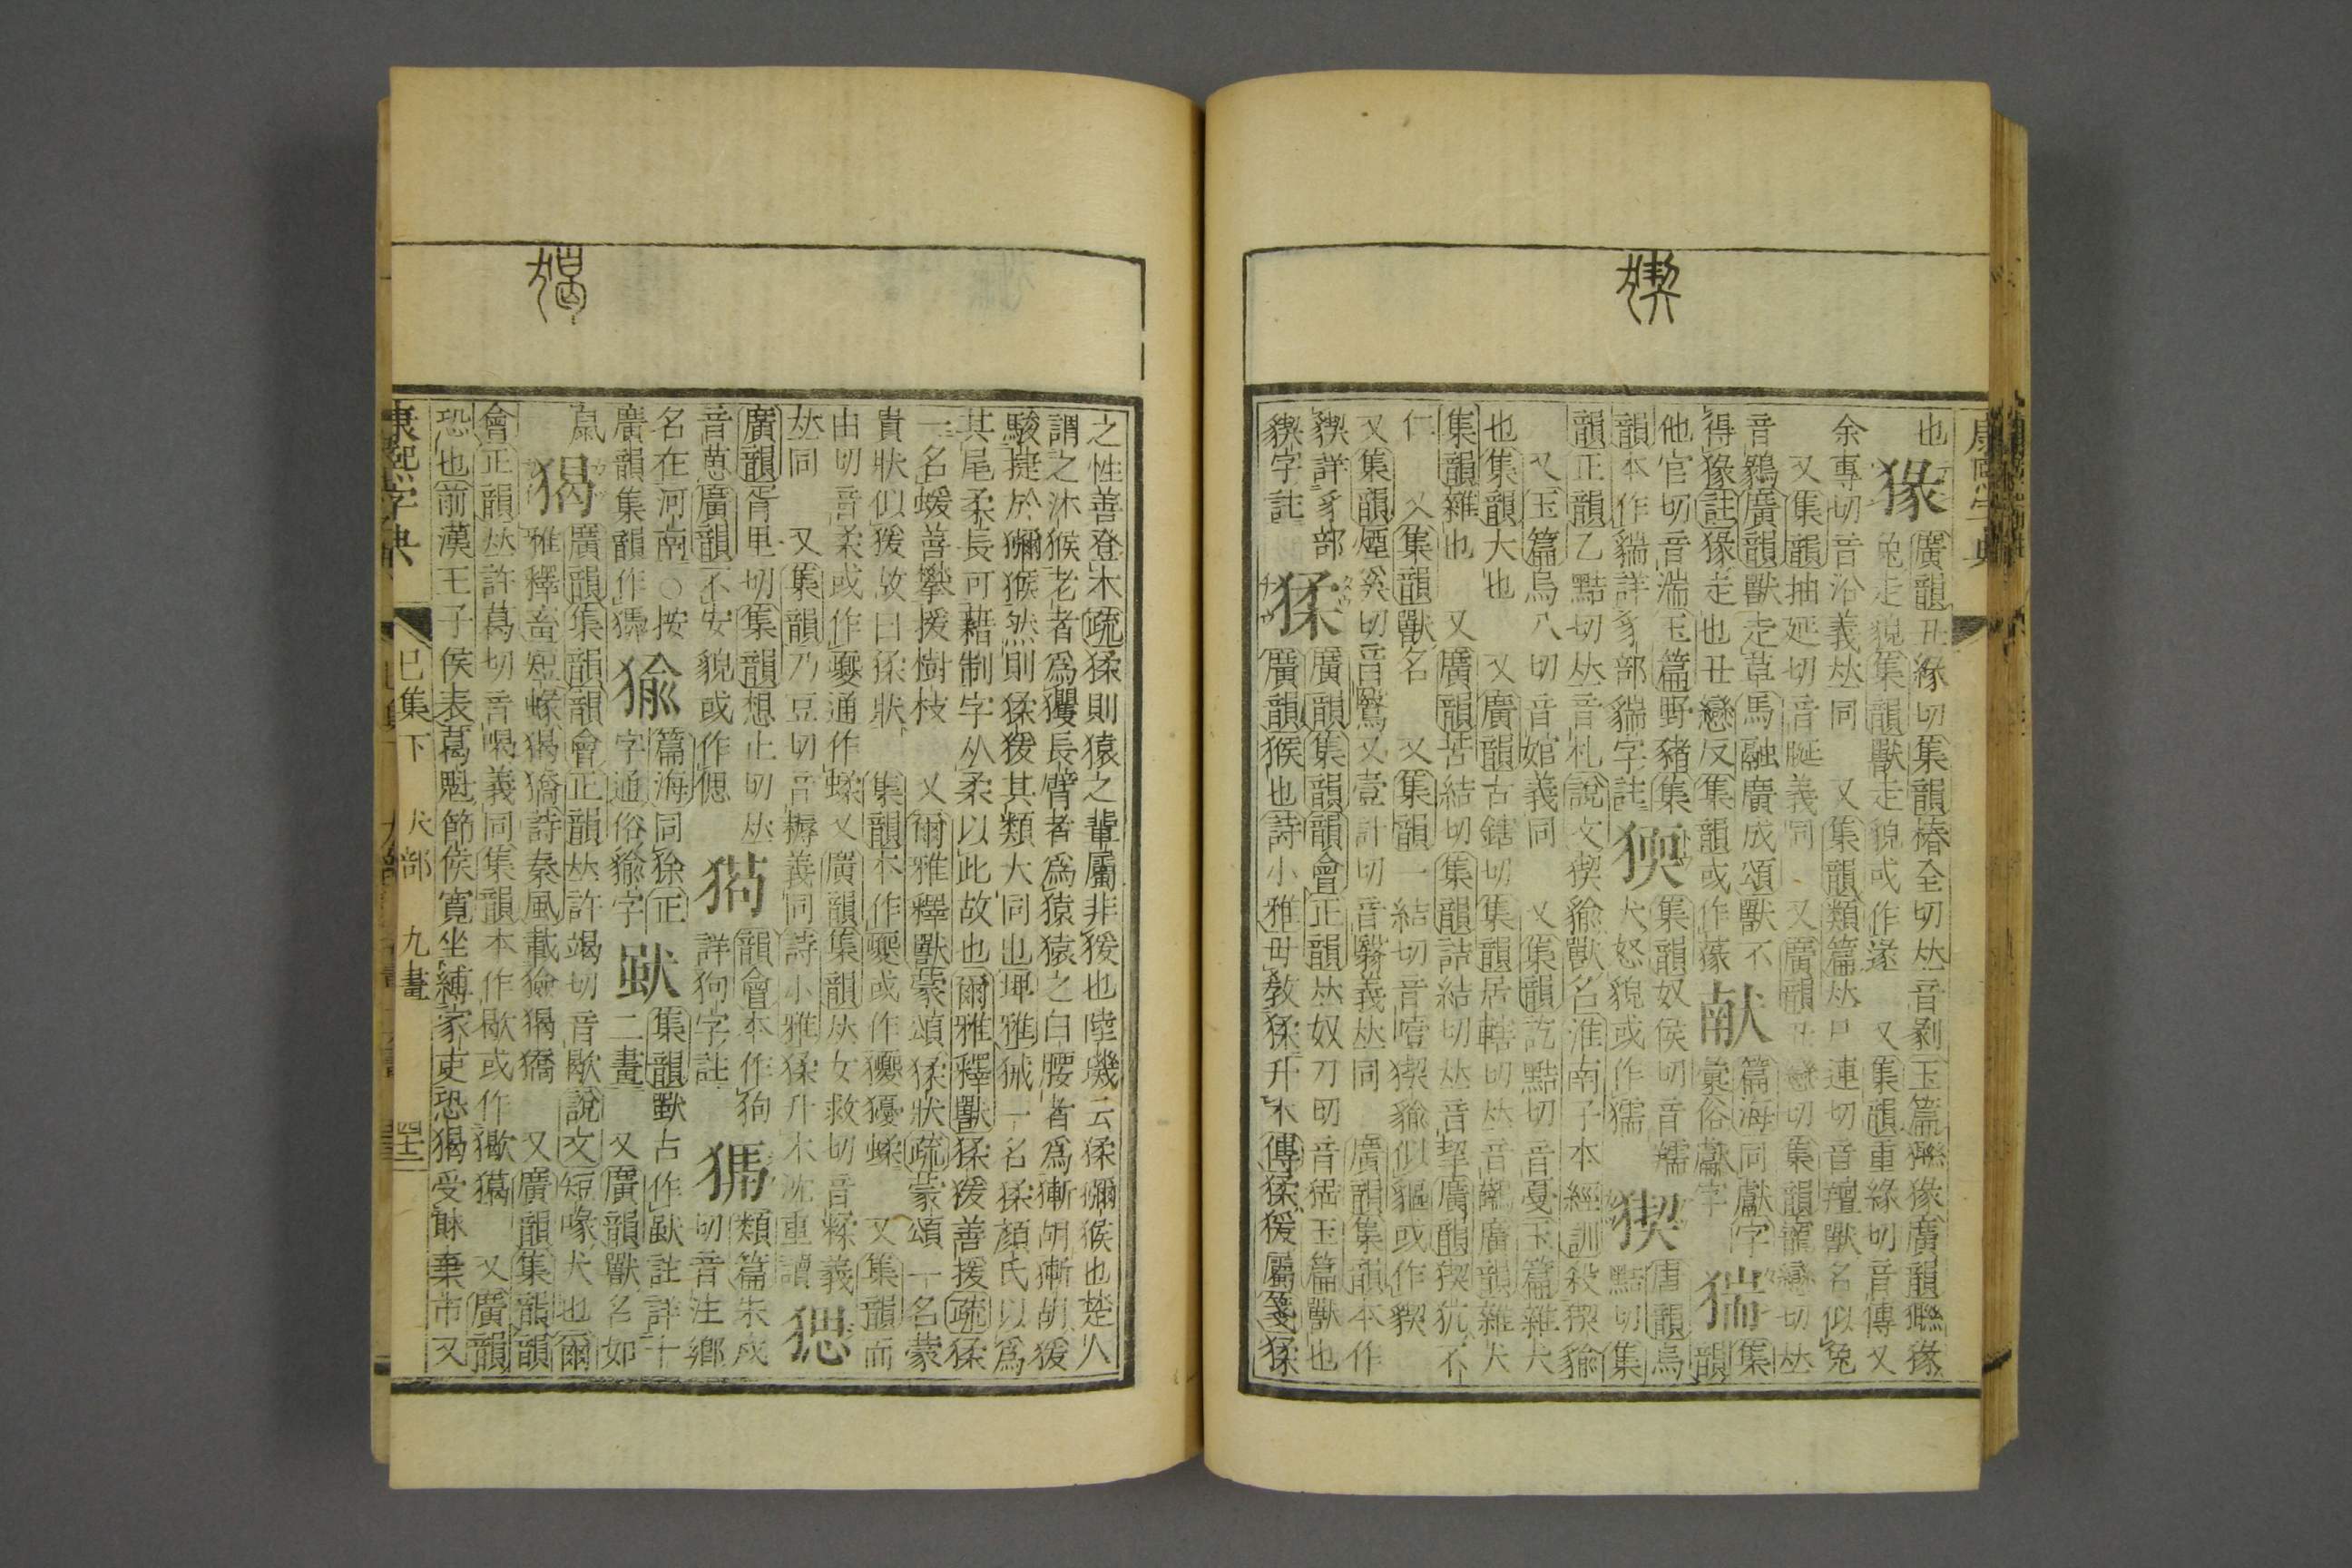 猰
康熙字典
也　廣韻丑緣切集韻椿全切𠀤音剶玉篇獵猭廣韻獵猭
猭兔走貌集韻獸走貌或作遂　又集韻重緣切音傳又
余專切音沿義𠀤同　又集韻類篇𠀤尸連切音羶獸名似兔
又集韻抽延切音脠義同　又廣韻丑戀切集韻寵戀切𠀤
音鶨廣韻獸走草馬融廣成頌獸不　献篇海同獻字　猯集
得猭註猭走也丑戀反集韻或作蒃　彙俗獻字　韻
他官切音湍玉篇野豬集　㺉集韻奴侯切音羺　猰唐韻烏
韻本作貒詳豸部貒字註　犬怒貌或作獳　黠切集
韻正韻乙黠切𠀤音札說文猰貐獸名淮南子本經訓殺猰貐
又玉篇烏八切音婠義同　又集韻訖黠切音戛玉篇雜犬
也集韻大也　又廣韻古鎋切集韻居轄切𠀤音鶷廣韻雜犬
集韻雜也　又廣韻苦結切集韻詰結切𠀤音挈廣韻猰犺不
仁　又集韻獸名　又集韻一結切音噎猰貐似貙或作貏
又集韻煙奚切音鷖又壹計切音翳義𠀤同　廣韻集韻本作
貏詳豸部　猱廣韻集韻韻會正韻𠀤奴刀切音猺玉篇獸也
貏字註　廣韻猴也詩小雅毋敎猱升木傳猱猨屬箋猱
猲
之性善登木疏猱則猿之輩屬非猨也陸璣云猱獼猴也楚人
謂之沐猴老者爲玃長臂者爲猿猿之白腰者爲獑胡獑胡猨
駿捷於獼猴然則猱猨其類大同也埤雅狨一名猱顏氏以爲
其尾柔長可藉制字从柔以此故也爾雅釋獸猱猨善援疏猱
一名蝯善攀援樹枝　又爾雅釋獸蒙頌猱狀疏蒙頌一名蒙
貴狀似猨故曰猱狀　集韻本作夒或作獿獶蝚　又集韻而
由切音柔或作夒通作蝚又廣韻集韻𠀤女救切音糅義
𠀤同　又集韻乃豆切音耨義同詩小雅猱升木沈重讀　猤
廣韻胥里切集韻想止切𠀤　㺃韻會本作狗　㺄類篇朱戍
音葸廣韻不安貌或作偲　詳狗字註　切音注鄉
名在河南○按　㺄篇海同㺄正　㺂集韻獸古作㺂註詳十
廣韻集韻作獁　字通俗貐字　二畫　又廣韻獸名如
鼠　猲廣韻集韻韻會正韻𠀤許竭切音歇說文短喙犬也爾
雅釋畜短喙猲獢詩秦風載獫猲獢　又廣韻集韻韻
會正韻𠀤許葛切音喝義同集韻本作歇或作獥獦　又廣韻
恐也前漢王子侯表葛魁節侯寬坐縛家吏恐猲受賕棄市又
康熙字典　巳集下　犬部　九畫　四十二